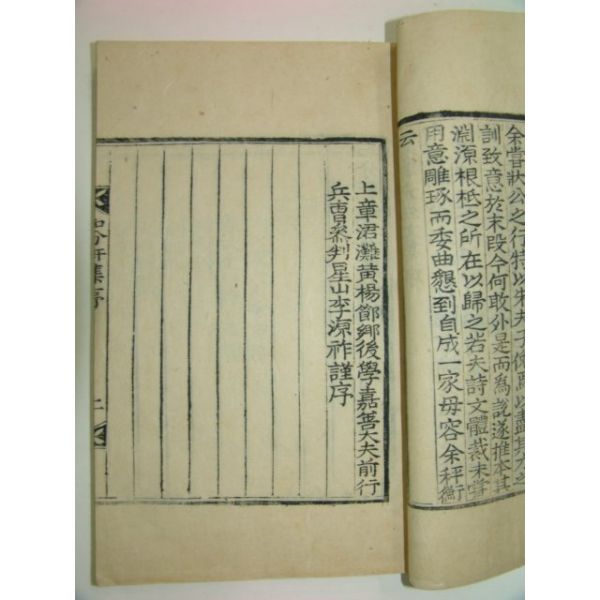 余嘗狀公之行特以朱夫子
訓致意於末段今何敢外是而爲說遂推本其
淵源根柢之所在以歸之若夫詩文體裁未嘗
用意雕琢而委曲懇到自成一家毋容余秤衡
云
上章涒灘黃楊節鄕後學嘉善大夫前行
兵曹參判星山李源祚謹序
集序
二